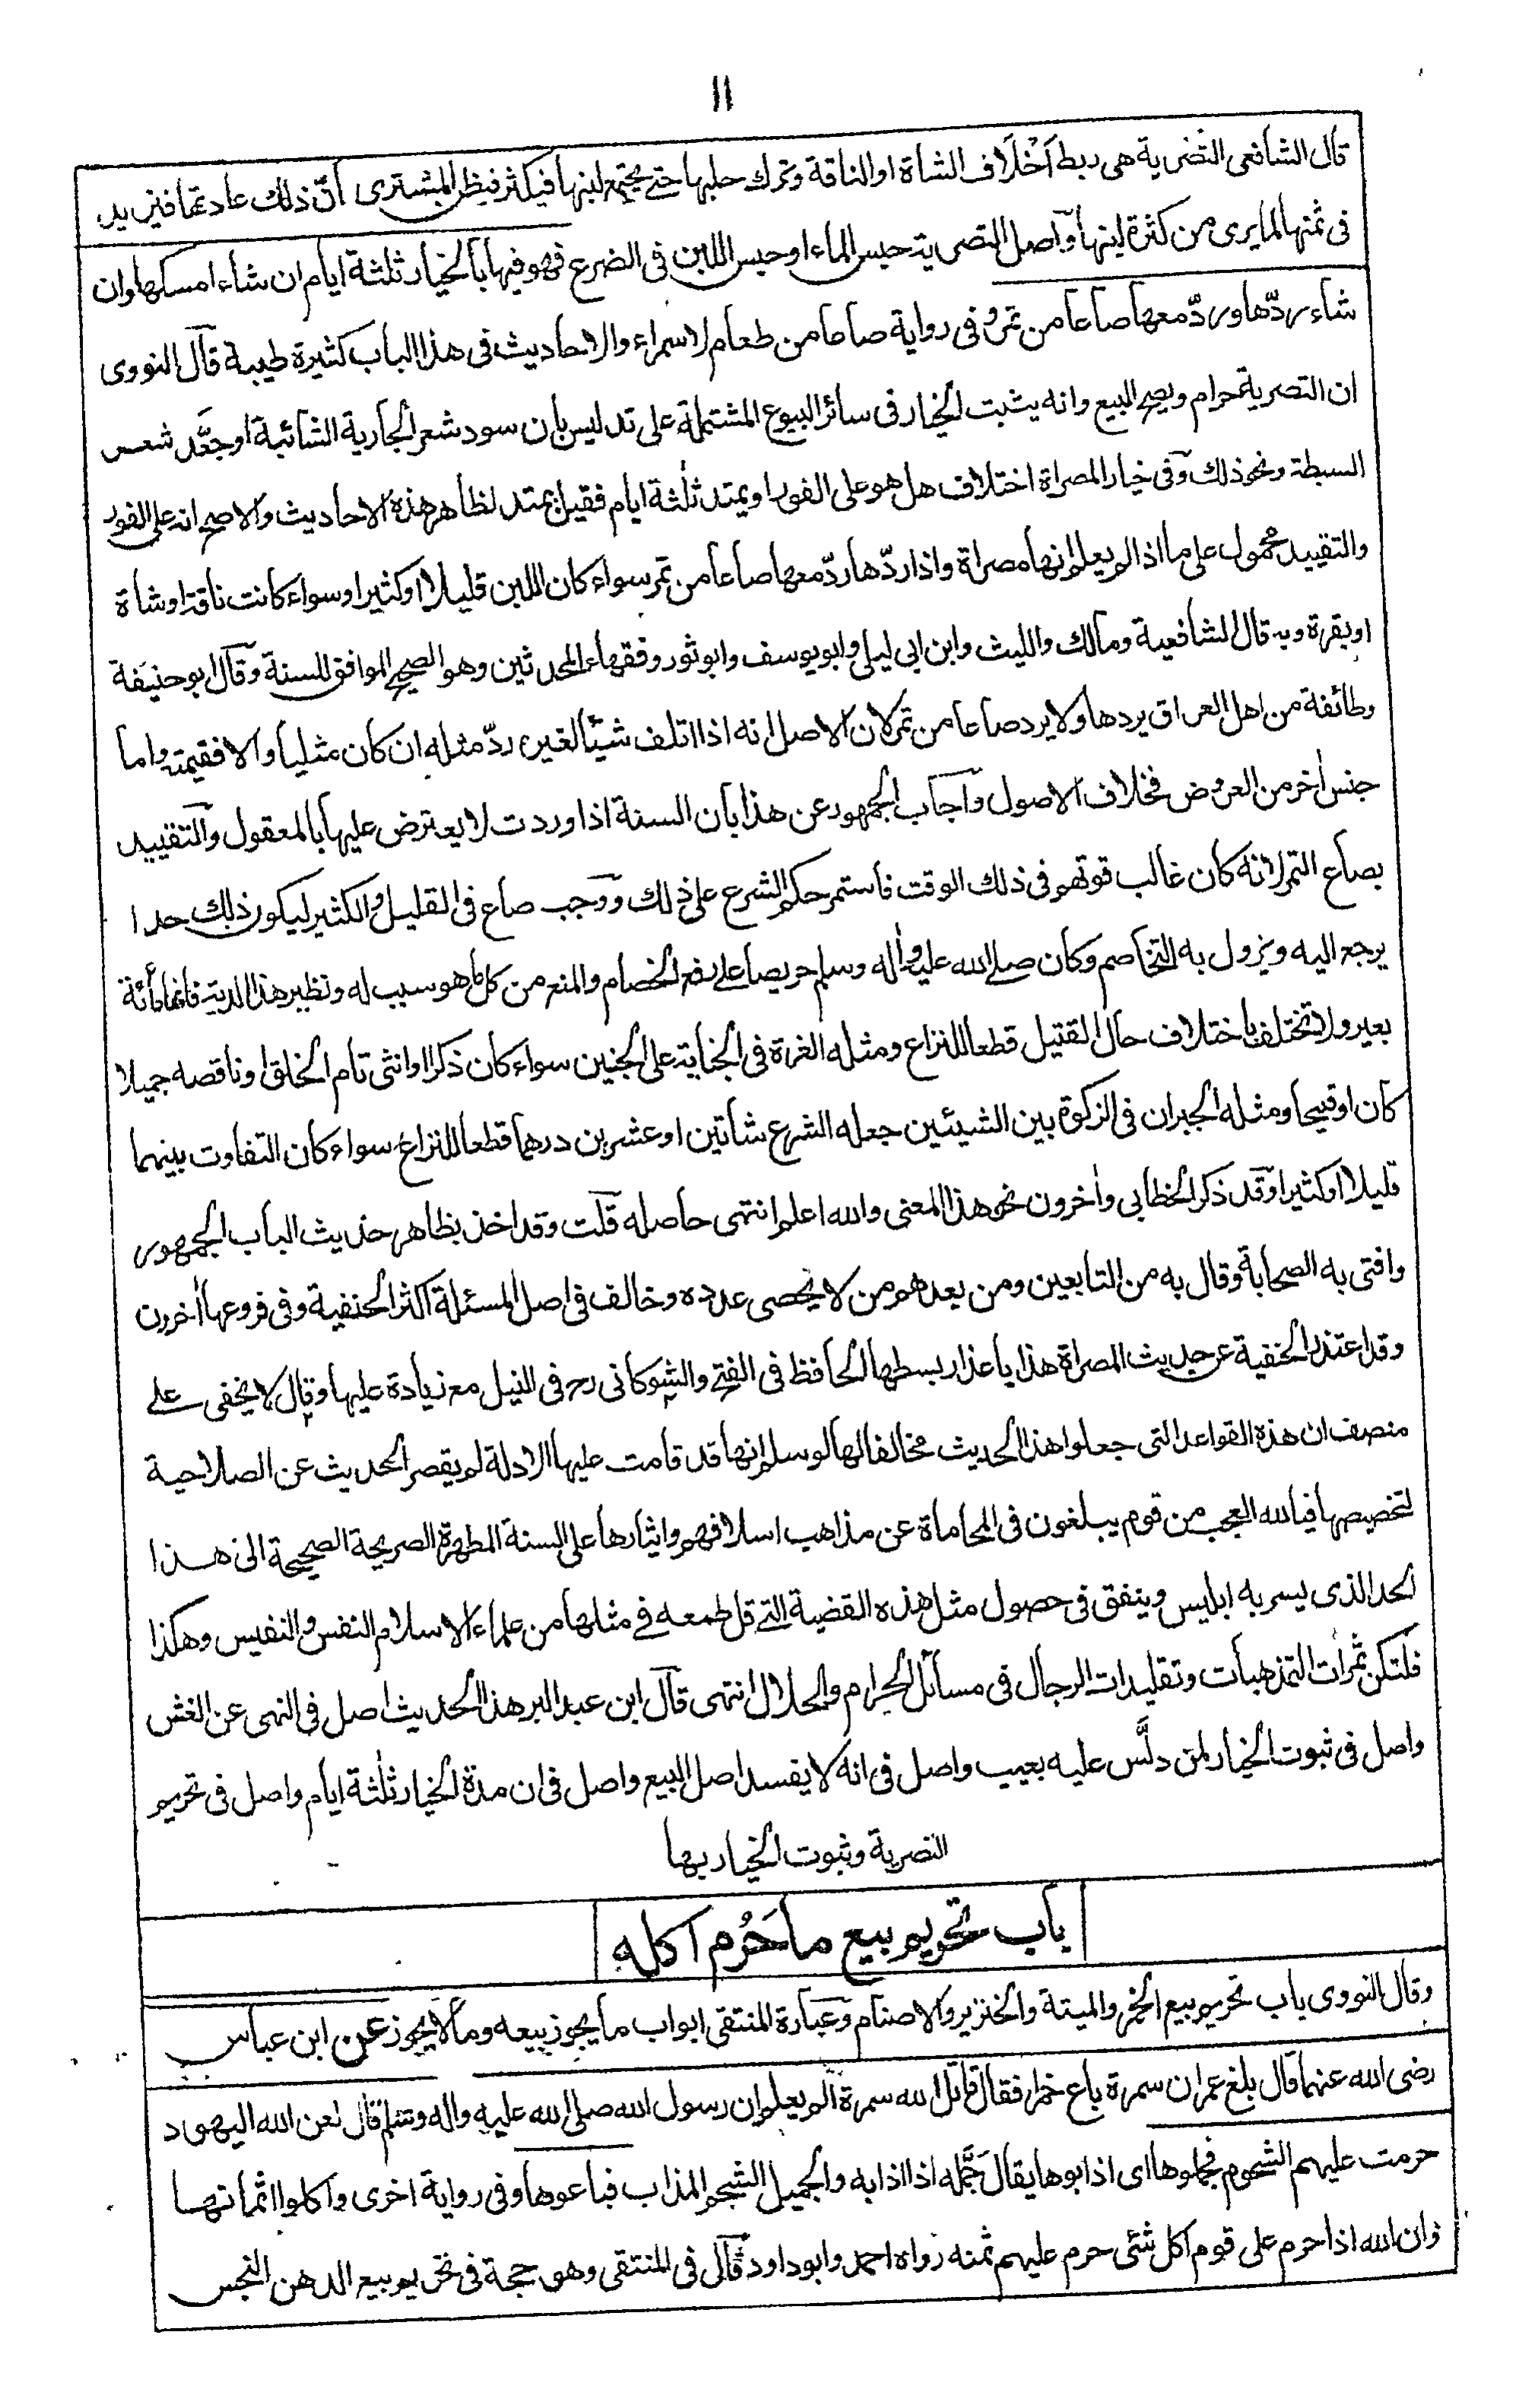 ١١
قال الشافعى التصرية هى ربط اَخْلَاف الشاة او الناقة وترك حلبها حتى يجتمع لبنها فيكثر فيظن المشترى انّ ذلك عادتها فيزيد
فى ثمنها لما يرى من كثرة لبنها وآصل التصرية حبس الماء او حبس اللبن فى الضرع فهو فيها بالخيار ثلثة ايام ان شاء امسكها وان
شاء ردّها وردّ معها صاعا من تمر و فى رواية صاعا من طعام لا سمراء والاحاديث فى هذا الباب كثيرة طيبة قآل النووى
ان التصرية حرام ويصح البيع وانه يثبت الخيار فى سائر البيوع المشتملة على تدليس بان سود شعر الجارية الشائبة او جعَّد شعر
السبطة ونحو ذلك وَفى خيار المصراة اختلاف هل هو على الفور او يمتد ثلٰثة ايام فقيل يمتد لظاهر هذه الاحاديث والاصح انه على الفور
والتقييد محمول على ما اذا لم يعلم انها مصراة واذا ردّها ردّ معها صاعا من تمر سواء كان اللبن قليلا او كثيرا وسواء كانت ناقة او شاة
او بقرة وبه قال الشافعية ومالك والليث وابن ابى ليلى وابو يوسف وابو ثور وفقهاء المحدثين وهو الصحيح الموافق للسنة وقآل ابو حنيفة
وطائفة من اهل العراق يردها ولا يرد صاعا من تمر لان الاصل انه اذا اتلف شيئا لغيره ردّ مثله ان كان مثليا والا فقيمته واما
جنس اٰخر من العروض فخلاف الاصول وآجاب الجمهور عن هذا بان السنة اذا وردت لا يعترض عليها بالمعقول وآلتقييد
بصاع التمر لانه كان غالب قوتهم فى ذلك الوقت فاستمر حكم الشرع على ذلك ووَجب صاع فى القليل والكثير ليكون ذلك حدا
يرجع اليه ويزول به التخاصم وكان صلى الله عليه واٰله وسلم حريصا على رفع الخصام والمنع من كل ما هو سبب له ونظير هذا الدية فانها مائة
بعير ولا تختلف باختلاف حال القتيل قطعا للنزاع ومثله الغرة فى الجناية على الجنين سواء كان ذكرا او انثى تام الخلق او ناقصه جميلا
كان او قبيحا ومثله الجبران فى الزكوة بين الشيئين جعله الشرع شاتين او عشرين درهما قطعا للنزاع سواء كان التفاوت بينهما
قليلا او كثيرا وَقد ذكر الخطابى واٰخرون نحو هذا المعنى والله اعلم انتهى حاصله قلت وقد اخذ بظاهر حديث الباب الجمهور
وافتى به الصحابة وقال به من التابعين ومن بعدهم من لا يحصى عدده وخالف فى اصل المسئلة اكثر الحنفية وفى فروعها اٰخرون
وقد اعتذر الحنفية عن حديث المصراة هذا باعذار بسطها الحافظ فى الفتح والشوكانى رح فى النيل مع زيادة عليها وقال لا يخفى على
منصف ان هذه القواعد التى جعلوا هذا الحديث مخالفا لها لو سلم انها قد قامت عليها الادلة لم يقصر الحديث عن الصلاحية
لتخصيصها فيا لله العجب من قوم يبلغون فى المحاماة عن مذاهب اسلافهم وايثارها على السنة المطهرة الصريحة الصحيحة الى هذا
الحد الذى يسر به ابليس وينفق فى حصول مثل هذه القضية التى قل طمعه فى مثلها من علماء الاسلام النفس والنفيس وهكذا
فلتكن ثمرات التمذهبات وتقليدات الرجال فى مسائل الحرام والحلال انتهى قآل ابن عبد البر هذا الحديث اصل فى النهى عن الغش
واصل فى ثبوت الخيار لمن دلَّس عليه بعيب واصل فى انه لا يفسد اصل البيع واصل فى ان مدة الخيار ثلٰثة ايام واصل فى تحريم
التصرية وثبوت الخيار بها
باب تحريم بيع ما حَرُم اكله
وقال النووى باب تحريم بيع الخمر والميتة والخنزير والاصنام وَعبارة المنتقى ابواب ما يجوز بيعه وما لا يجوز عن ابن عباس
رضى الله عنهما قال بلغ عمر ان سمرة باع خمرا فقال قاتل الله سمرة الم يعلم ان رسول الله صلى الله عليه واٰله وسلم قال لعن الله اليهود
حرمت عليهم الشحوم فجملوها اى اذابوها يقال جَمَّله اذا اذابه والجميل الشحم المذاب فباعوها وفى رواية اخرى واكلوا اثمانها
وان الله اذا حرم على قوم اكل شئ حرم عليهم ثمنه رواه احمد وابو داود قآل فى المنتقى وهو حجة فى تحريم بيع الدهن النجس